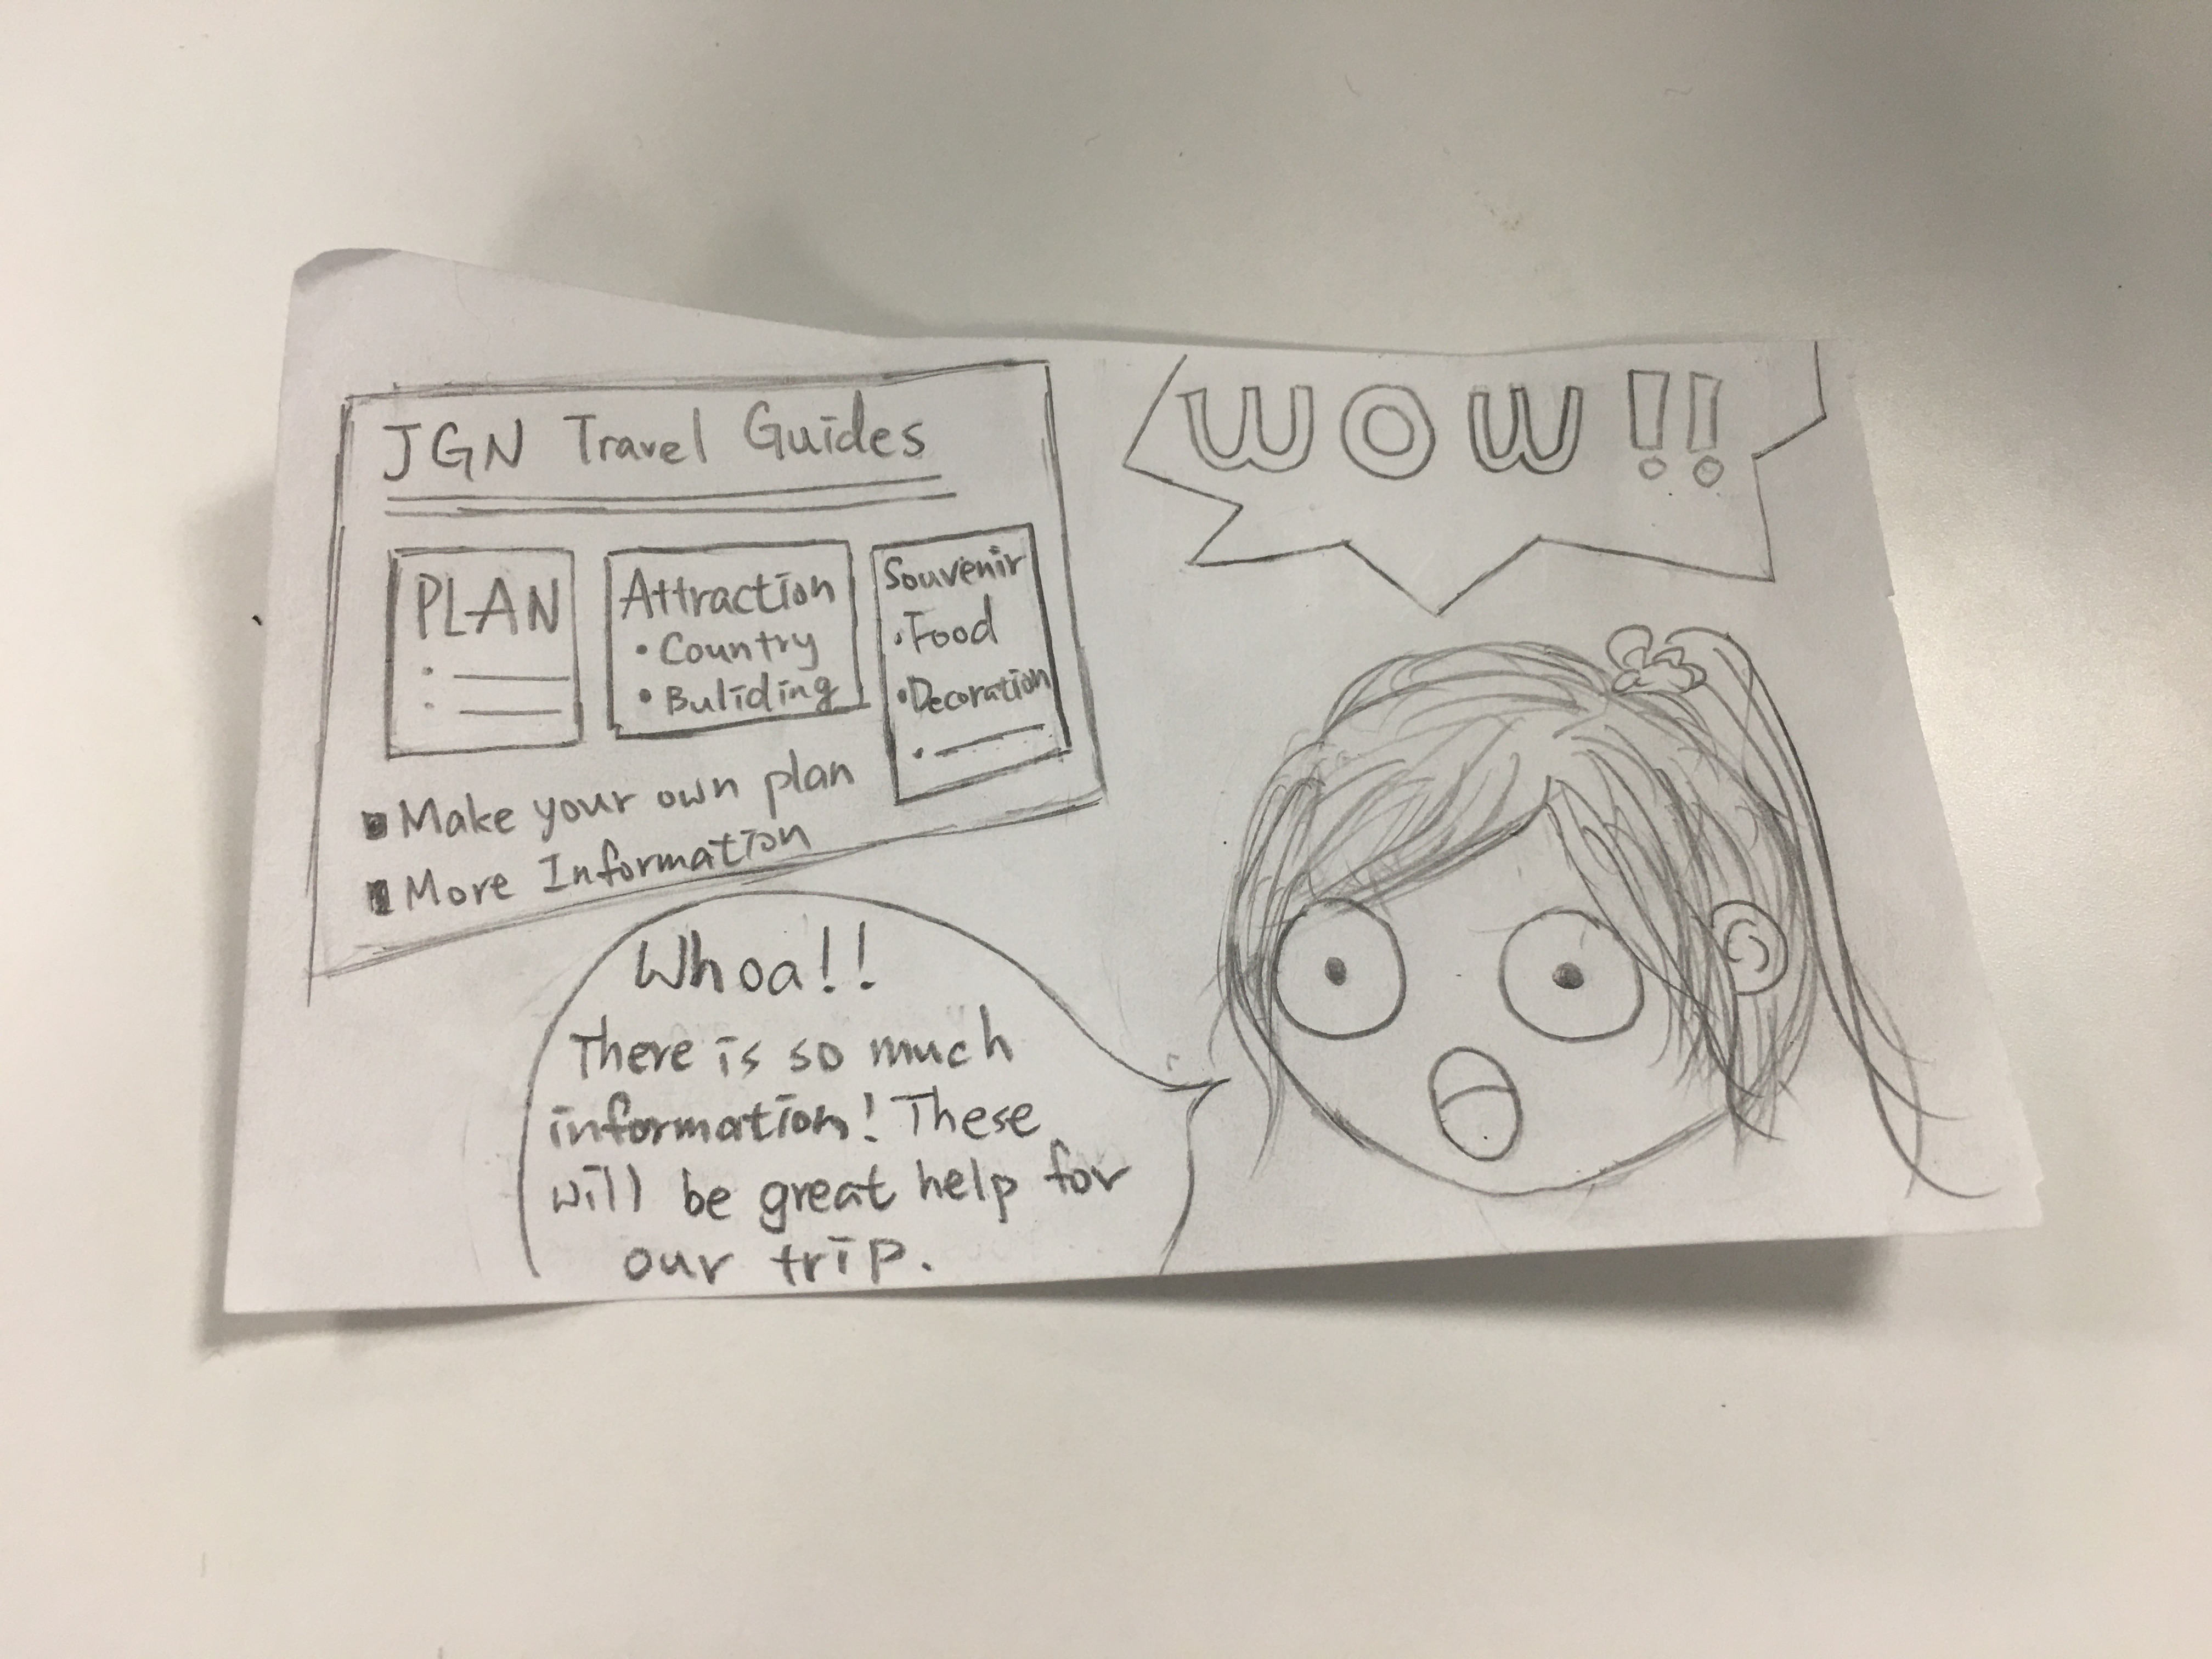 JGN Travel Guides
PLAN
Attraction
• Country
• Buliding
Souvenir
• Food
• Decoration
■ Make your own plan
■ More Information
WOW!!
Whoa!!
There is so much
information! These
will be great help for
our trip.